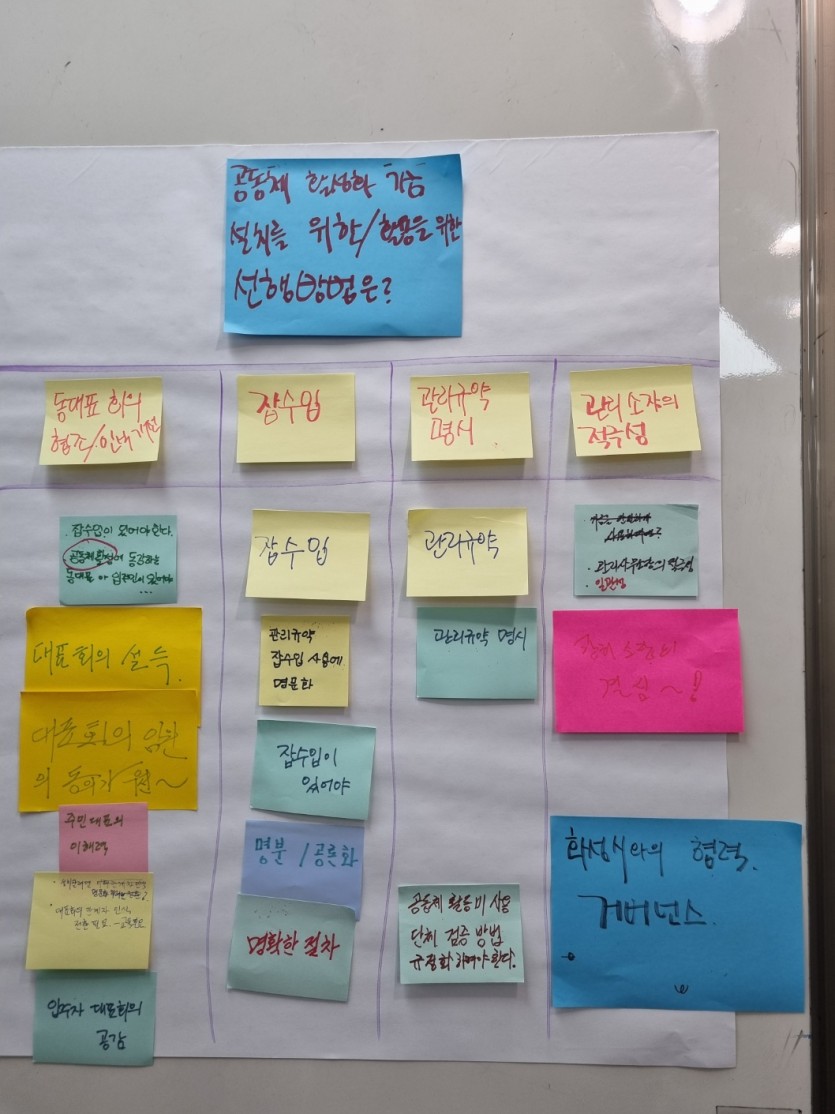 공동체 활성화 기금
설치를 위한/활용을 위한
선행방법은?
동대표 회의
협조/인식개선
잡수입
관리규약
명시
관리소장의
적극성
· 잡수입이 있어야 한다.
공동체활성에 동감하는
동대표 나 입주민이 있어야
...
대표회의 설득.
대표회의 임원
의 동의가 필~
주민대표의
이해력
· 대표회의 관계자 인식
전환 필요
입주자 대표회의
공감
잡수입
관리규약
잡수입 사용에
명문화
잡수입이
있어야
명분 / 공론화
명확한 절차
관리규약
관리규약 명시
공동체 활동비 사용
단체 검증 방법
규정화 하여야 된다.
· 관리사무소장의 적극성
· 일관성
관리소장의
결심~!
화성시와의 협력.
거버넌스.